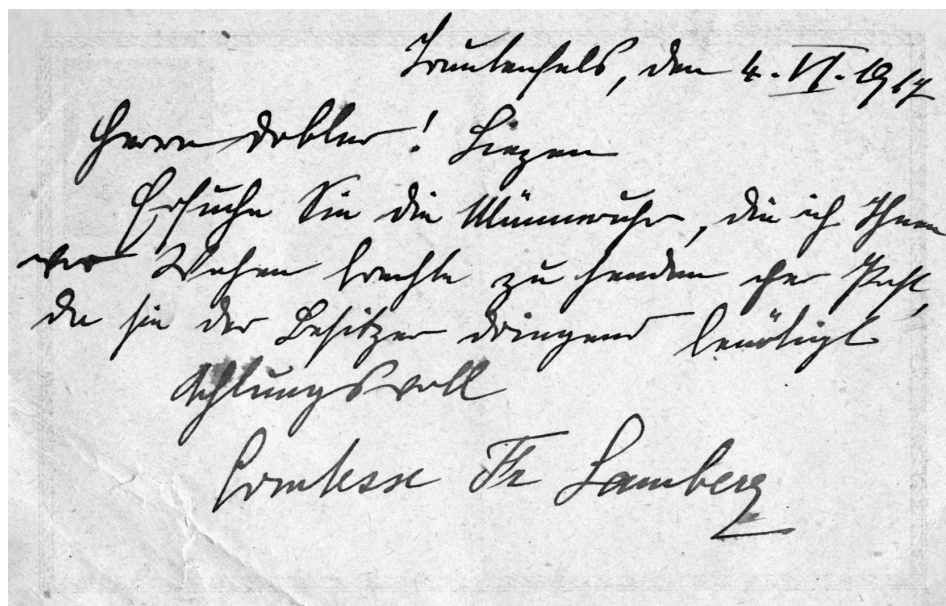 Trautenfels, den 4. VI. 1917
Herrn Dobler! Liezen
Ersuche Sie die Männeruhr, die ich Ihnen
vor Wochen brachte zu senden per Post,
da sie der Besitzer dringend benötigt
Achtungsvoll
Comtesse Fr Lamberg